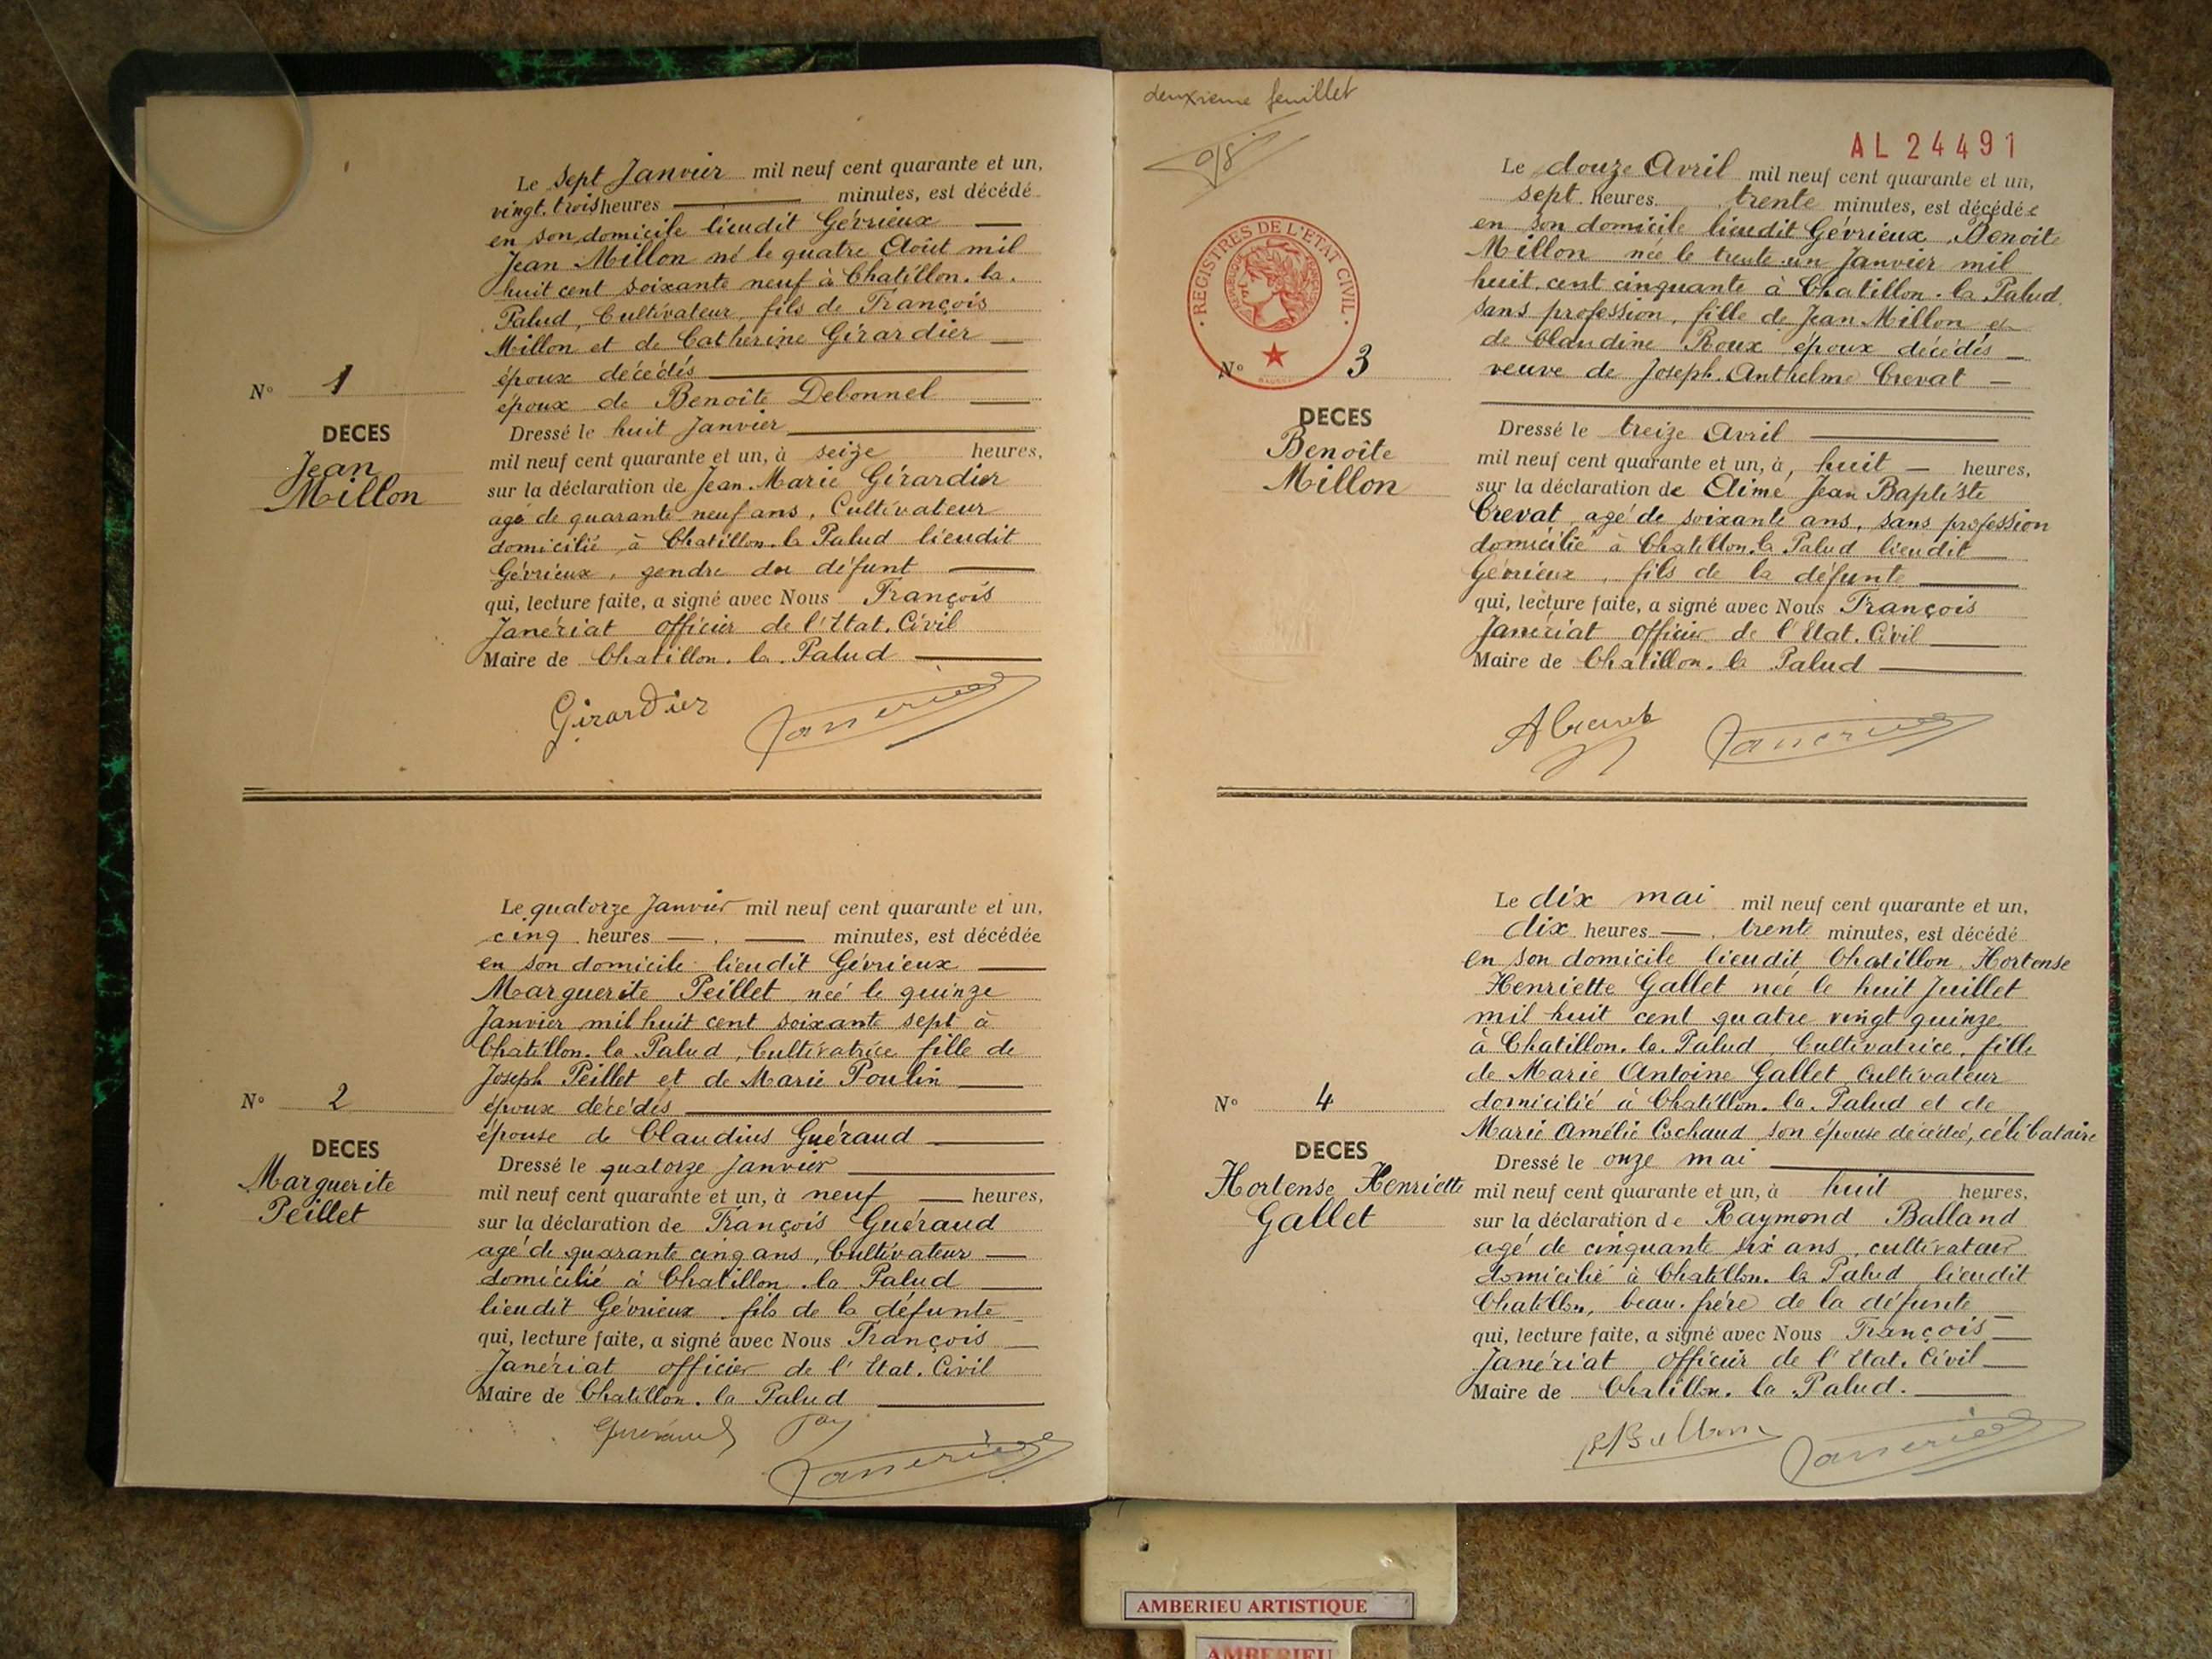 Le sept Janvier mil neuf cent quarante et un,
vingt.trois heures minutes, est décédé
en son domicile lieudit Gévrieux
Jean Millon né le quatre Août mil
huit cent soixante neuf à Chatillon.la.
Palud, Cultivateur, fils de François
Millon et de Catherine Girardier
époux décédés
époux de Benoîte Debonnel
Dressé le huit Janvier
mil neuf cent quarante et un, à seize heures,
sur la déclaration de Jean.Marie Girardier
agé de quarante neuf ans, Cultivateur
domicilié à Chatillon.la Palud lieudit
Gévrieux, gendre du défunt
qui, lecture faite, a signé avec Nous François
Janériat officier de l'Etat.Civil
Maire de Chatillon.la.Palud
N° 1
DECES
Jean
Millon
Girardier Janériat
Le quatorze Janvier mil neuf cent quarante et un,
cinq heures minutes, est décédée
en son domicile lieudit Gévrieux
Marguerite Peillet née le quinze
Janvier mil huit cent soixante sept à
Chatillon.la Palud, Cultivatrice fille de
Joseph Peillet et de Marie Poulin
époux décédés
épouse de Claudius Guéraud
Dressé le quatorze Janvier
mil neuf cent quarante et un, à neuf heures,
sur la déclaration de François Guéraud
agé de quarante cinq ans, Cultivateur
domicilié à Chatillon.la Palud
lieudit Gévrieux fils de la défunte
qui, lecture faite, a signé avec Nous François
Janériat officier de l'Etat.Civil
Maire de Chatillon.la Palud
N° 2
DECES
Marguerite
Peillet
Guéraud Janériat
deuxieme feuillet
AL 24491
REGISTRES DE L'ETAT CIVIL
Le douze Avril mil neuf cent quarante et un,
sept heures trente minutes, est décédée
en son domicile lieudit Gévrieux Benoite
Millon née le trente.un Janvier mil
huit.cent cinquante à Chatillon.la Palud
sans profession, fille de Jean Millon et
de Claudine Roux époux décédés
veuve de Joseph.Anthelme Crevat
N° 3
DECES
Benoîte
Millon
Dressé le treize Avril
mil neuf cent quarante et un, à huit heures,
sur la déclaration de Aimé Jean Baptiste
Crevat agé de soixante ans, sans profession
domicilié à Chatillon.la Palud lieudit
Gévrieux, fils de la défunte
qui, lecture faite, a signé avec Nous François
Janériat officier de l'Etat.Civil
Maire de Chatillon.la Palud
A Crevat Janériat
Le dix mai mil neuf cent quarante et un,
dix heures trente minutes, est décédé
en son domicile lieudit Chatillon Hortense
Henriette Gallet née le huit Juillet
mil huit cent quatre vingt quinze
à Chatillon.la.Palud, Cultivatrice, fille
de Marie Antoine Gallet cultivateur
domicilié à Chatillon.la.Palud et de
Marie Amélie Cochaud son épouse décédée, célibataire
N° 4
DECES
Hortense Henriette
Gallet
Dressé le onze mai
mil neuf cent quarante et un, à huit heures,
sur la déclaration de Raymond Balland
agé de cinquante six ans cultivateur
domicilié à Chatillon.la Palud lieudit
Chatillon, beau.frère de la défunte
qui, lecture faite, a signé avec Nous François
Janériat officier de l'Etat.Civil
Maire de Chatillon.la Palud.
Janériat
AMBERIEU ARTISTIQUE
AMBERIEU